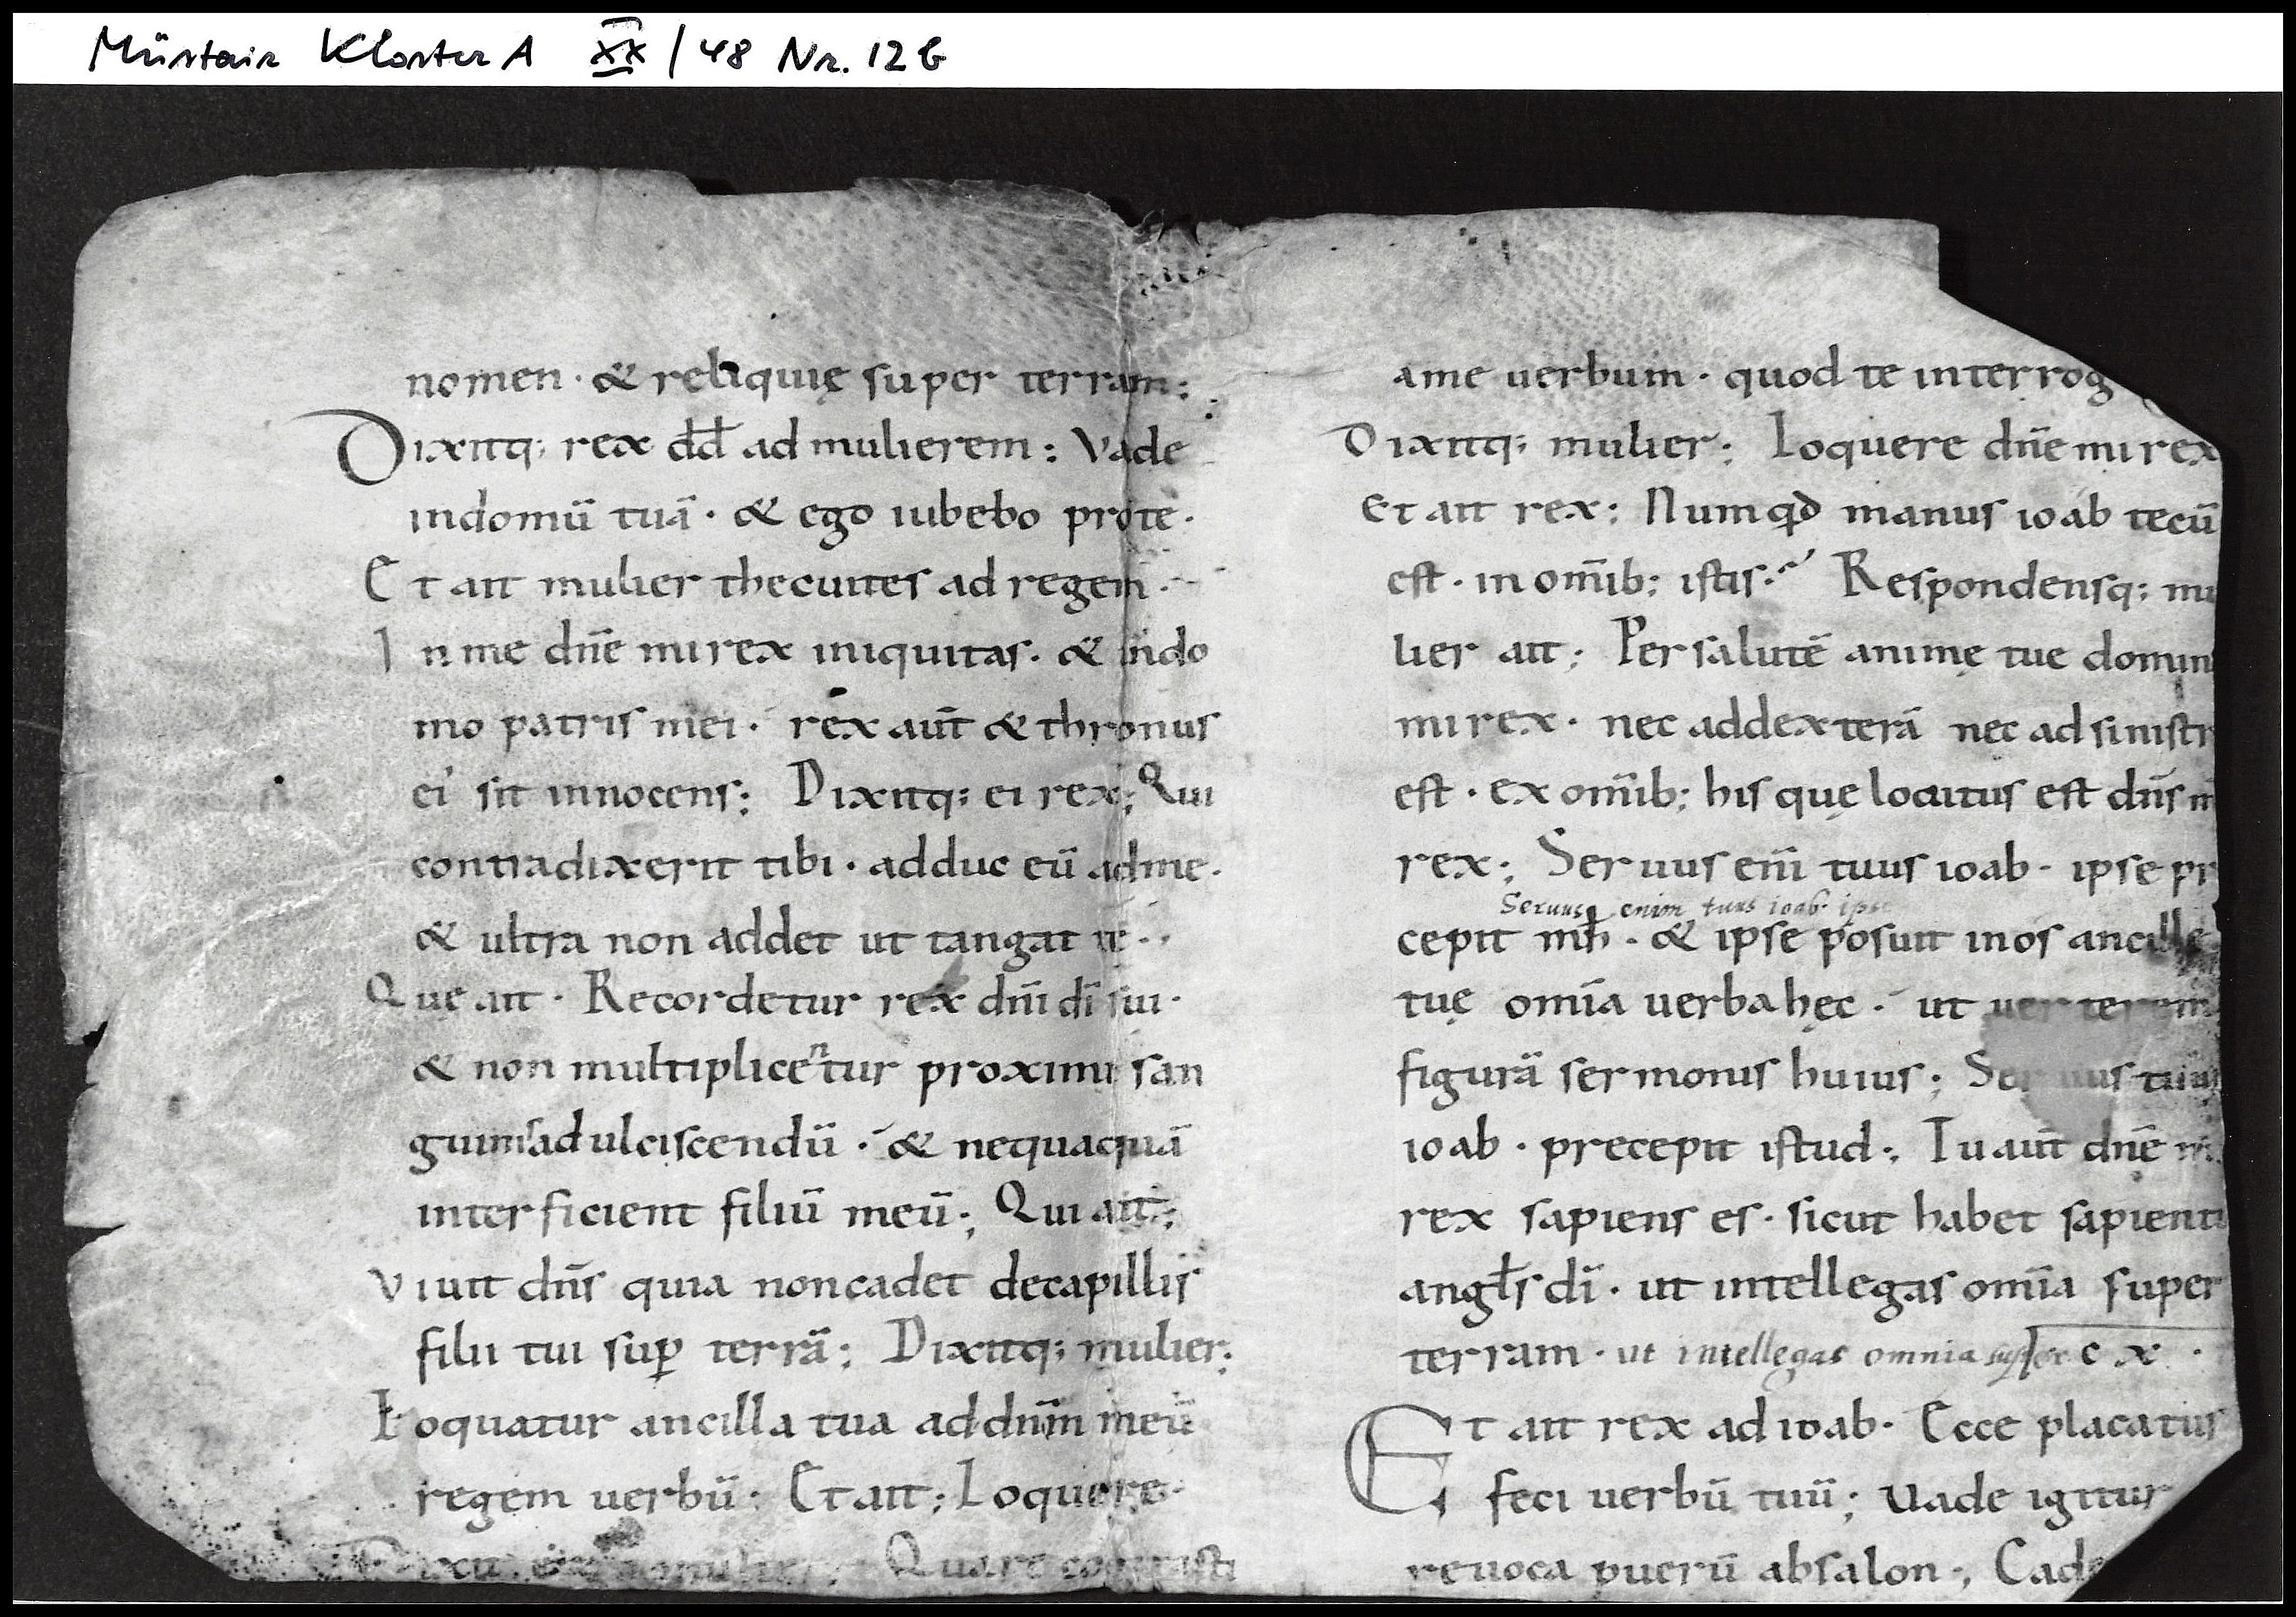 Müstair Kloster A XX / 48 Nr. 12 b
nomen · & reliquię super terram;
Dixitq; rex dd̄ ad mulierem: Vade
indomū tuā · & ego iubebo prote ·
Et ait mulier thecuites ad regem ·
In me dn̄e mi rex iniquitas · & indo
mo patris mei · rex aut̄ & thronus
ei' sit innocens; Dixitq; ei rex; Qui
contradixerit tibi · adduc eū adme ·
& ultra non addet ut tangat te ·
Que ait · Recordetur rex dn̄i dī sui ·
& non multiplicentur proximi san
guinis ad ulciscendū · & nequaquā
interficient filiū meū; Qui ait;
Viuit dn̄s quia noncadet decapillis
filii tui suꝑ terrā; Dixitq; mulier;
Loquatur ancilla tua ad dn̄m meū
regem uerbū; Et ait; Loquere ·
mulier; Quare cogitasti
ame uerbum · quod te interrog
Dixitq; mulier; Loquere dn̄e mi rex
Et ait rex; Numqd manus ioab tecū
est · in om̄ib; istis? Respondensq; mu
lier ait; Per salutē animę tue domin
mi rex · nec addexterā nec ad sinistr
est · ex om̄ib; his quę locutus est dn̄s m
rex; Seruus eni̅ tuus ioab · ipse pr
Seruus enim tuus ioab ipse
cepit mh̄ · & ipse posuit inos ancille
tuę omīa uerba hęc · ut uerterem
figurā sermonis huius; Seruus tuus
ioab · precepit istud; Tu aut̄ dn̄e m
rex sapiens es · sicut habet sapienti
angl̄s dī · ut intellegas omīa super
terram · ut intellegas omnia super c x ·
Et ait rex ad ioab · Ecce placatus
feci uerbū tuū; Uade igitur
reuoca puerū absalon; Cade